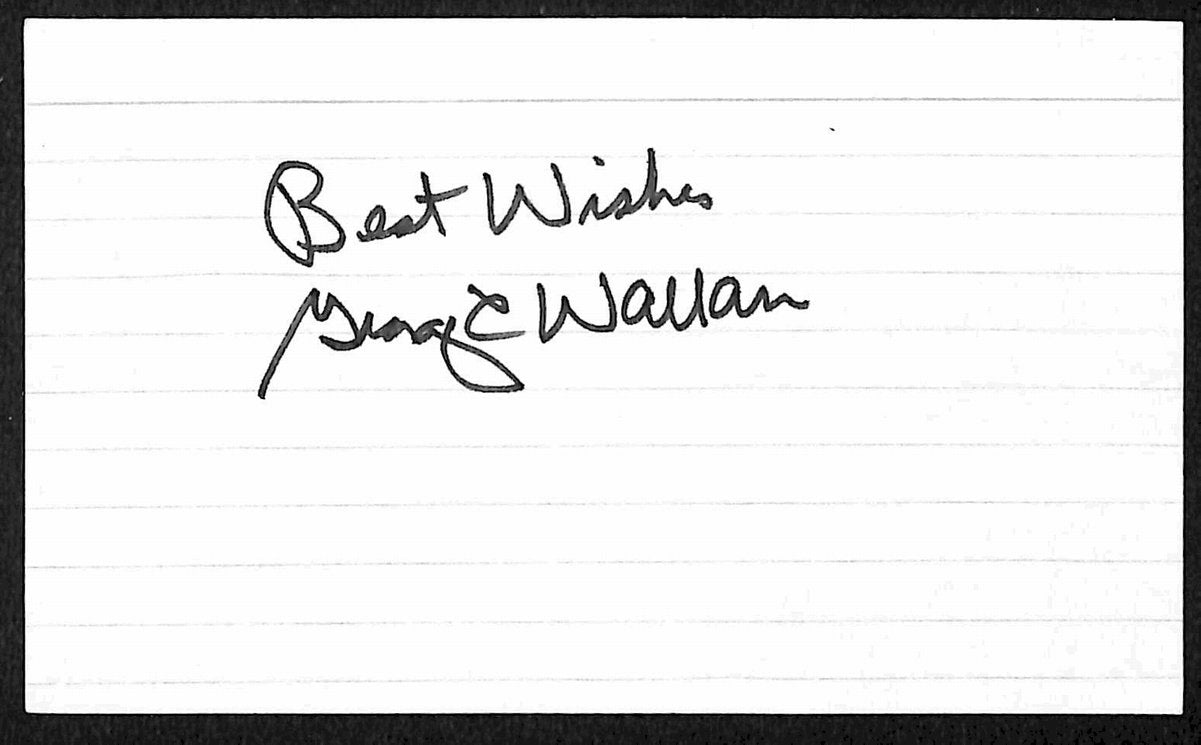 Best Wishes
George C Wallace